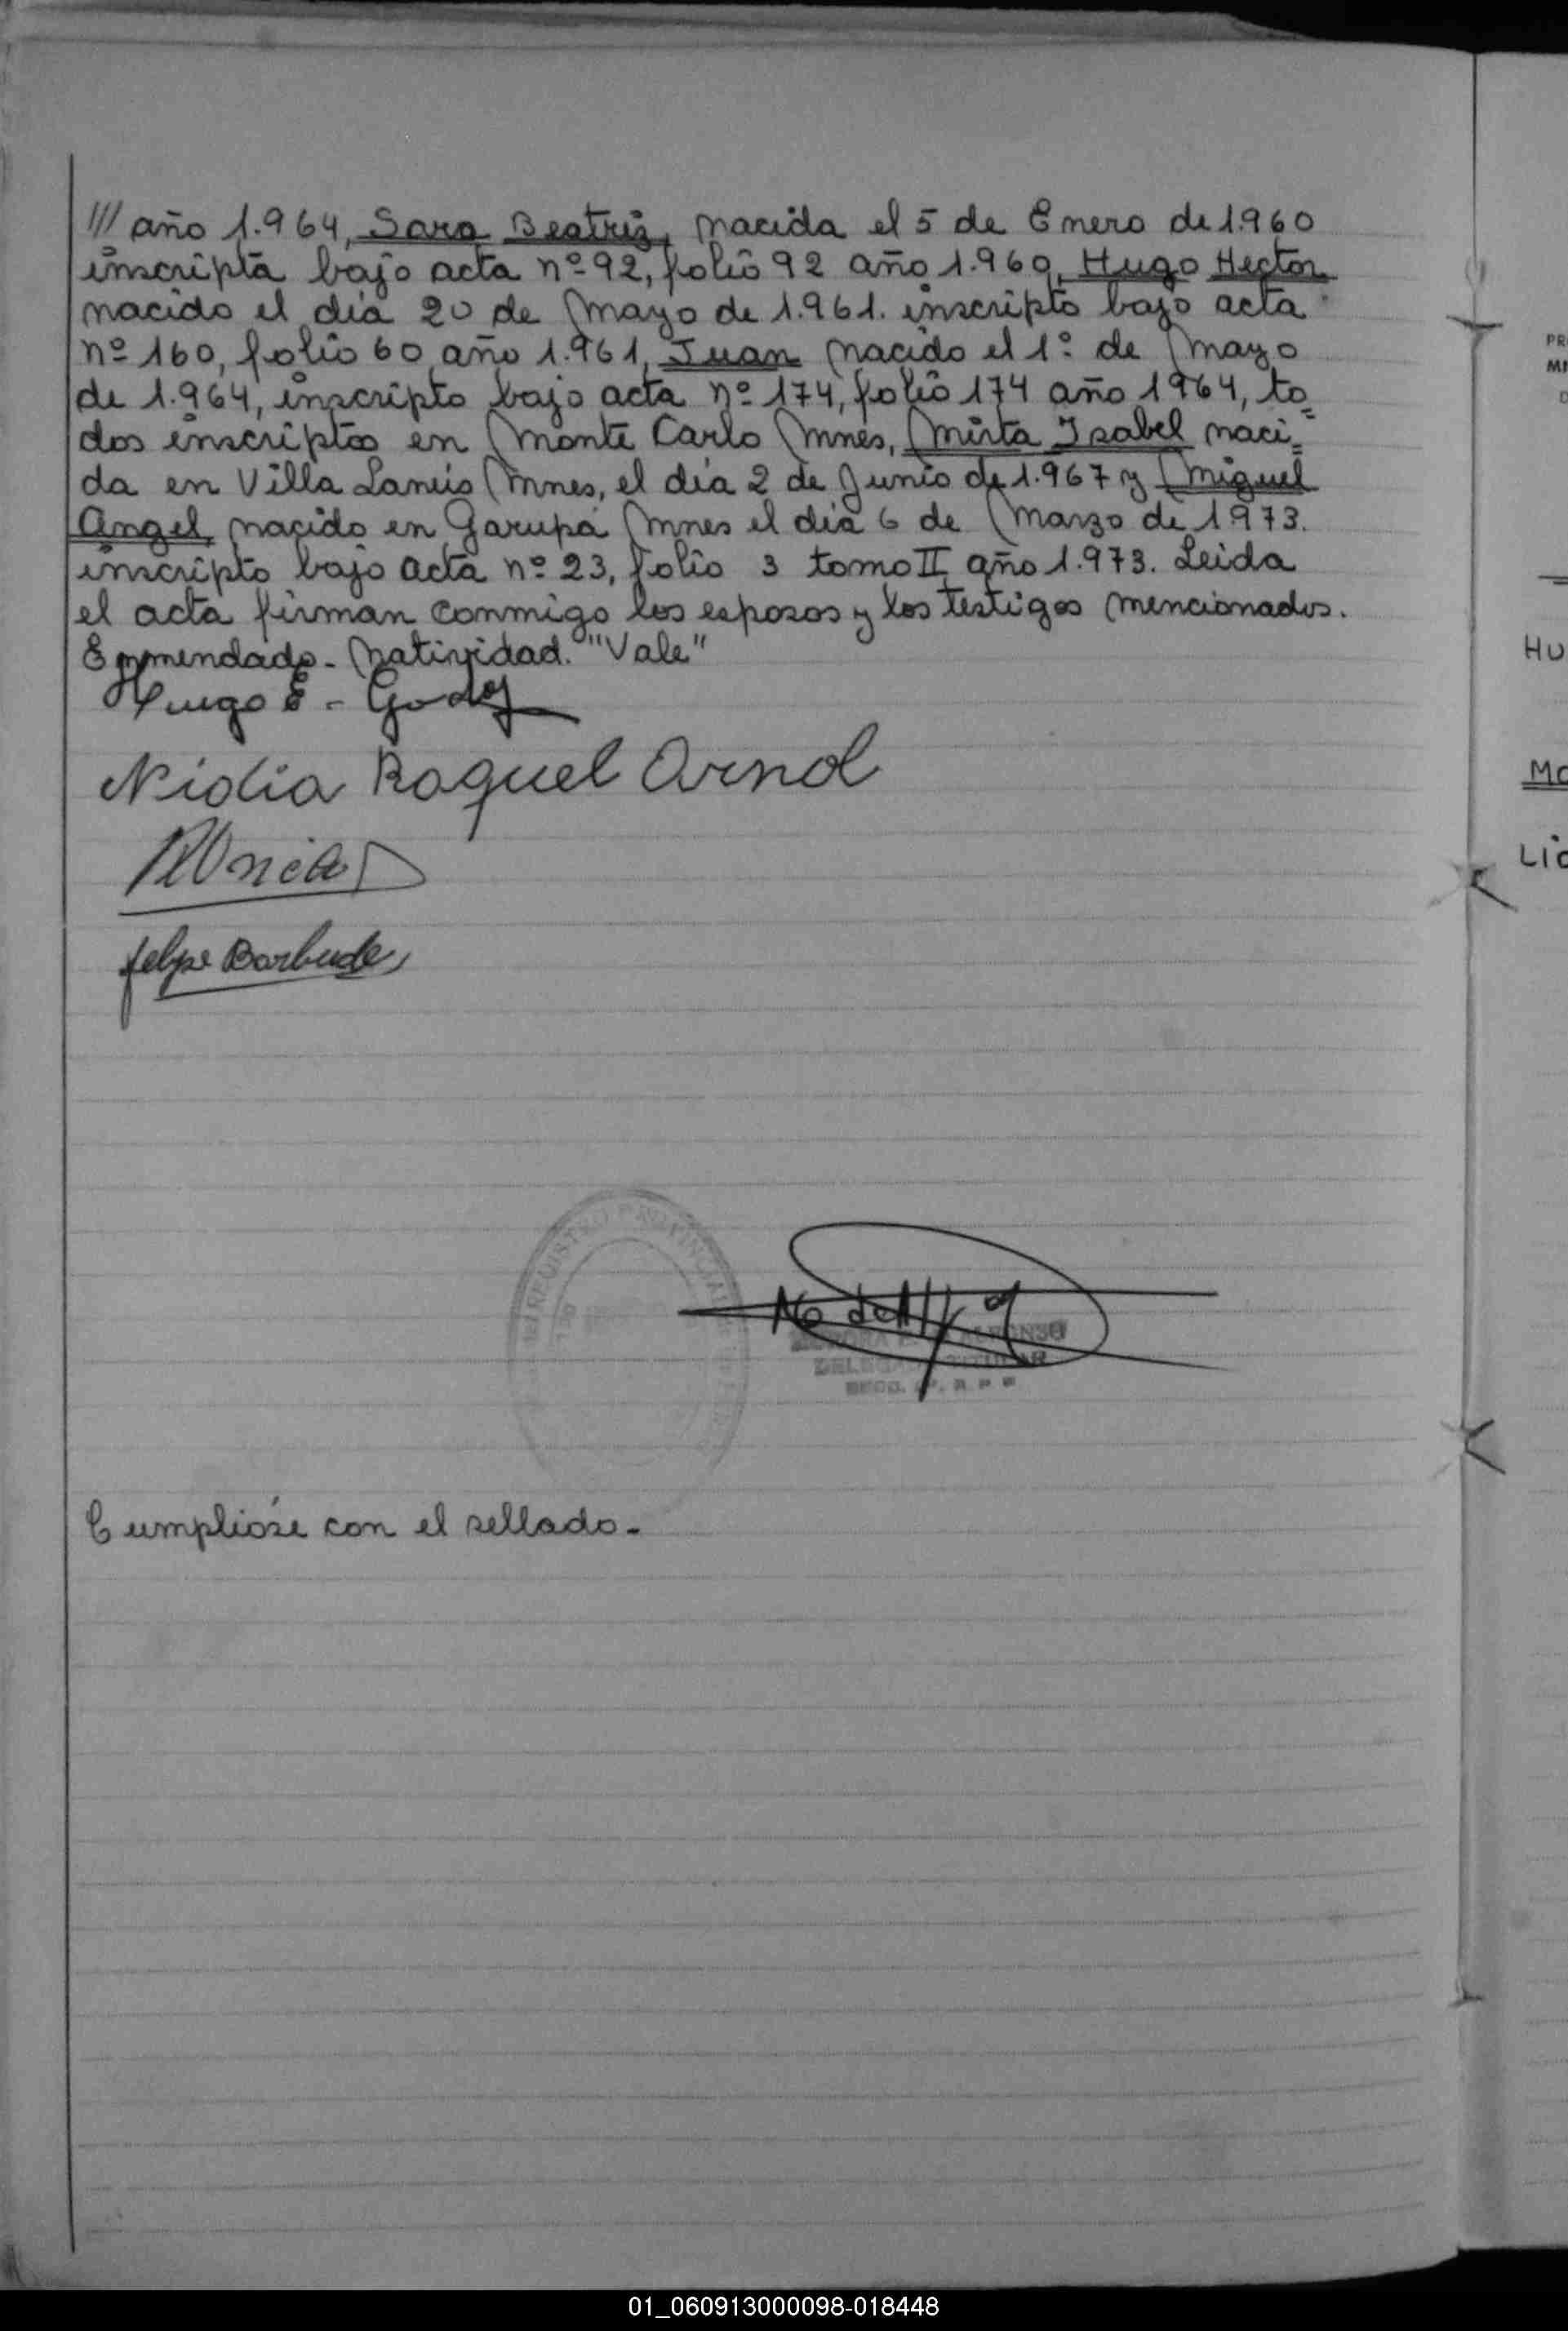 /// año 1.964, Sara Beatriz, nacida el 5 de Enero de 1.960
inscripta bajo acta nº 92, folio 92 año 1.960, Hugo Hector
nacido el día 20 de Mayo de 1.961. inscripto bajo acta
nº 160, folio 60 año 1.961, Juan nacido el 1º de Mayo
de 1.964, inscripto bajo acta nº 174, folio 174 año 1964, to=
dos inscriptos en Monte Carlo Mnes, Mirta Isabel naci=
da en Villa Lanús Mnes, el día 2 de Junio de 1.967 y Miguel
Angel, nacido en Garupá Mnes el día 6 de Marzo de 1973.
inscripto bajo acta nº 23, folio 3 tomo II año 1.973. Leida
el acta firman conmigo los esposos y los testigos mencionados.
Enmendado - Natividad. "Vale"
Hugo E - Godoy
Nidia Raquel Arnol
felipe Barbude
REGISTRO PROVINCIAL
ALFONSO
TITULAR
Cumplióse con el sellado -
PR
MI
HU
MO
LIC
01_060913000098-018448